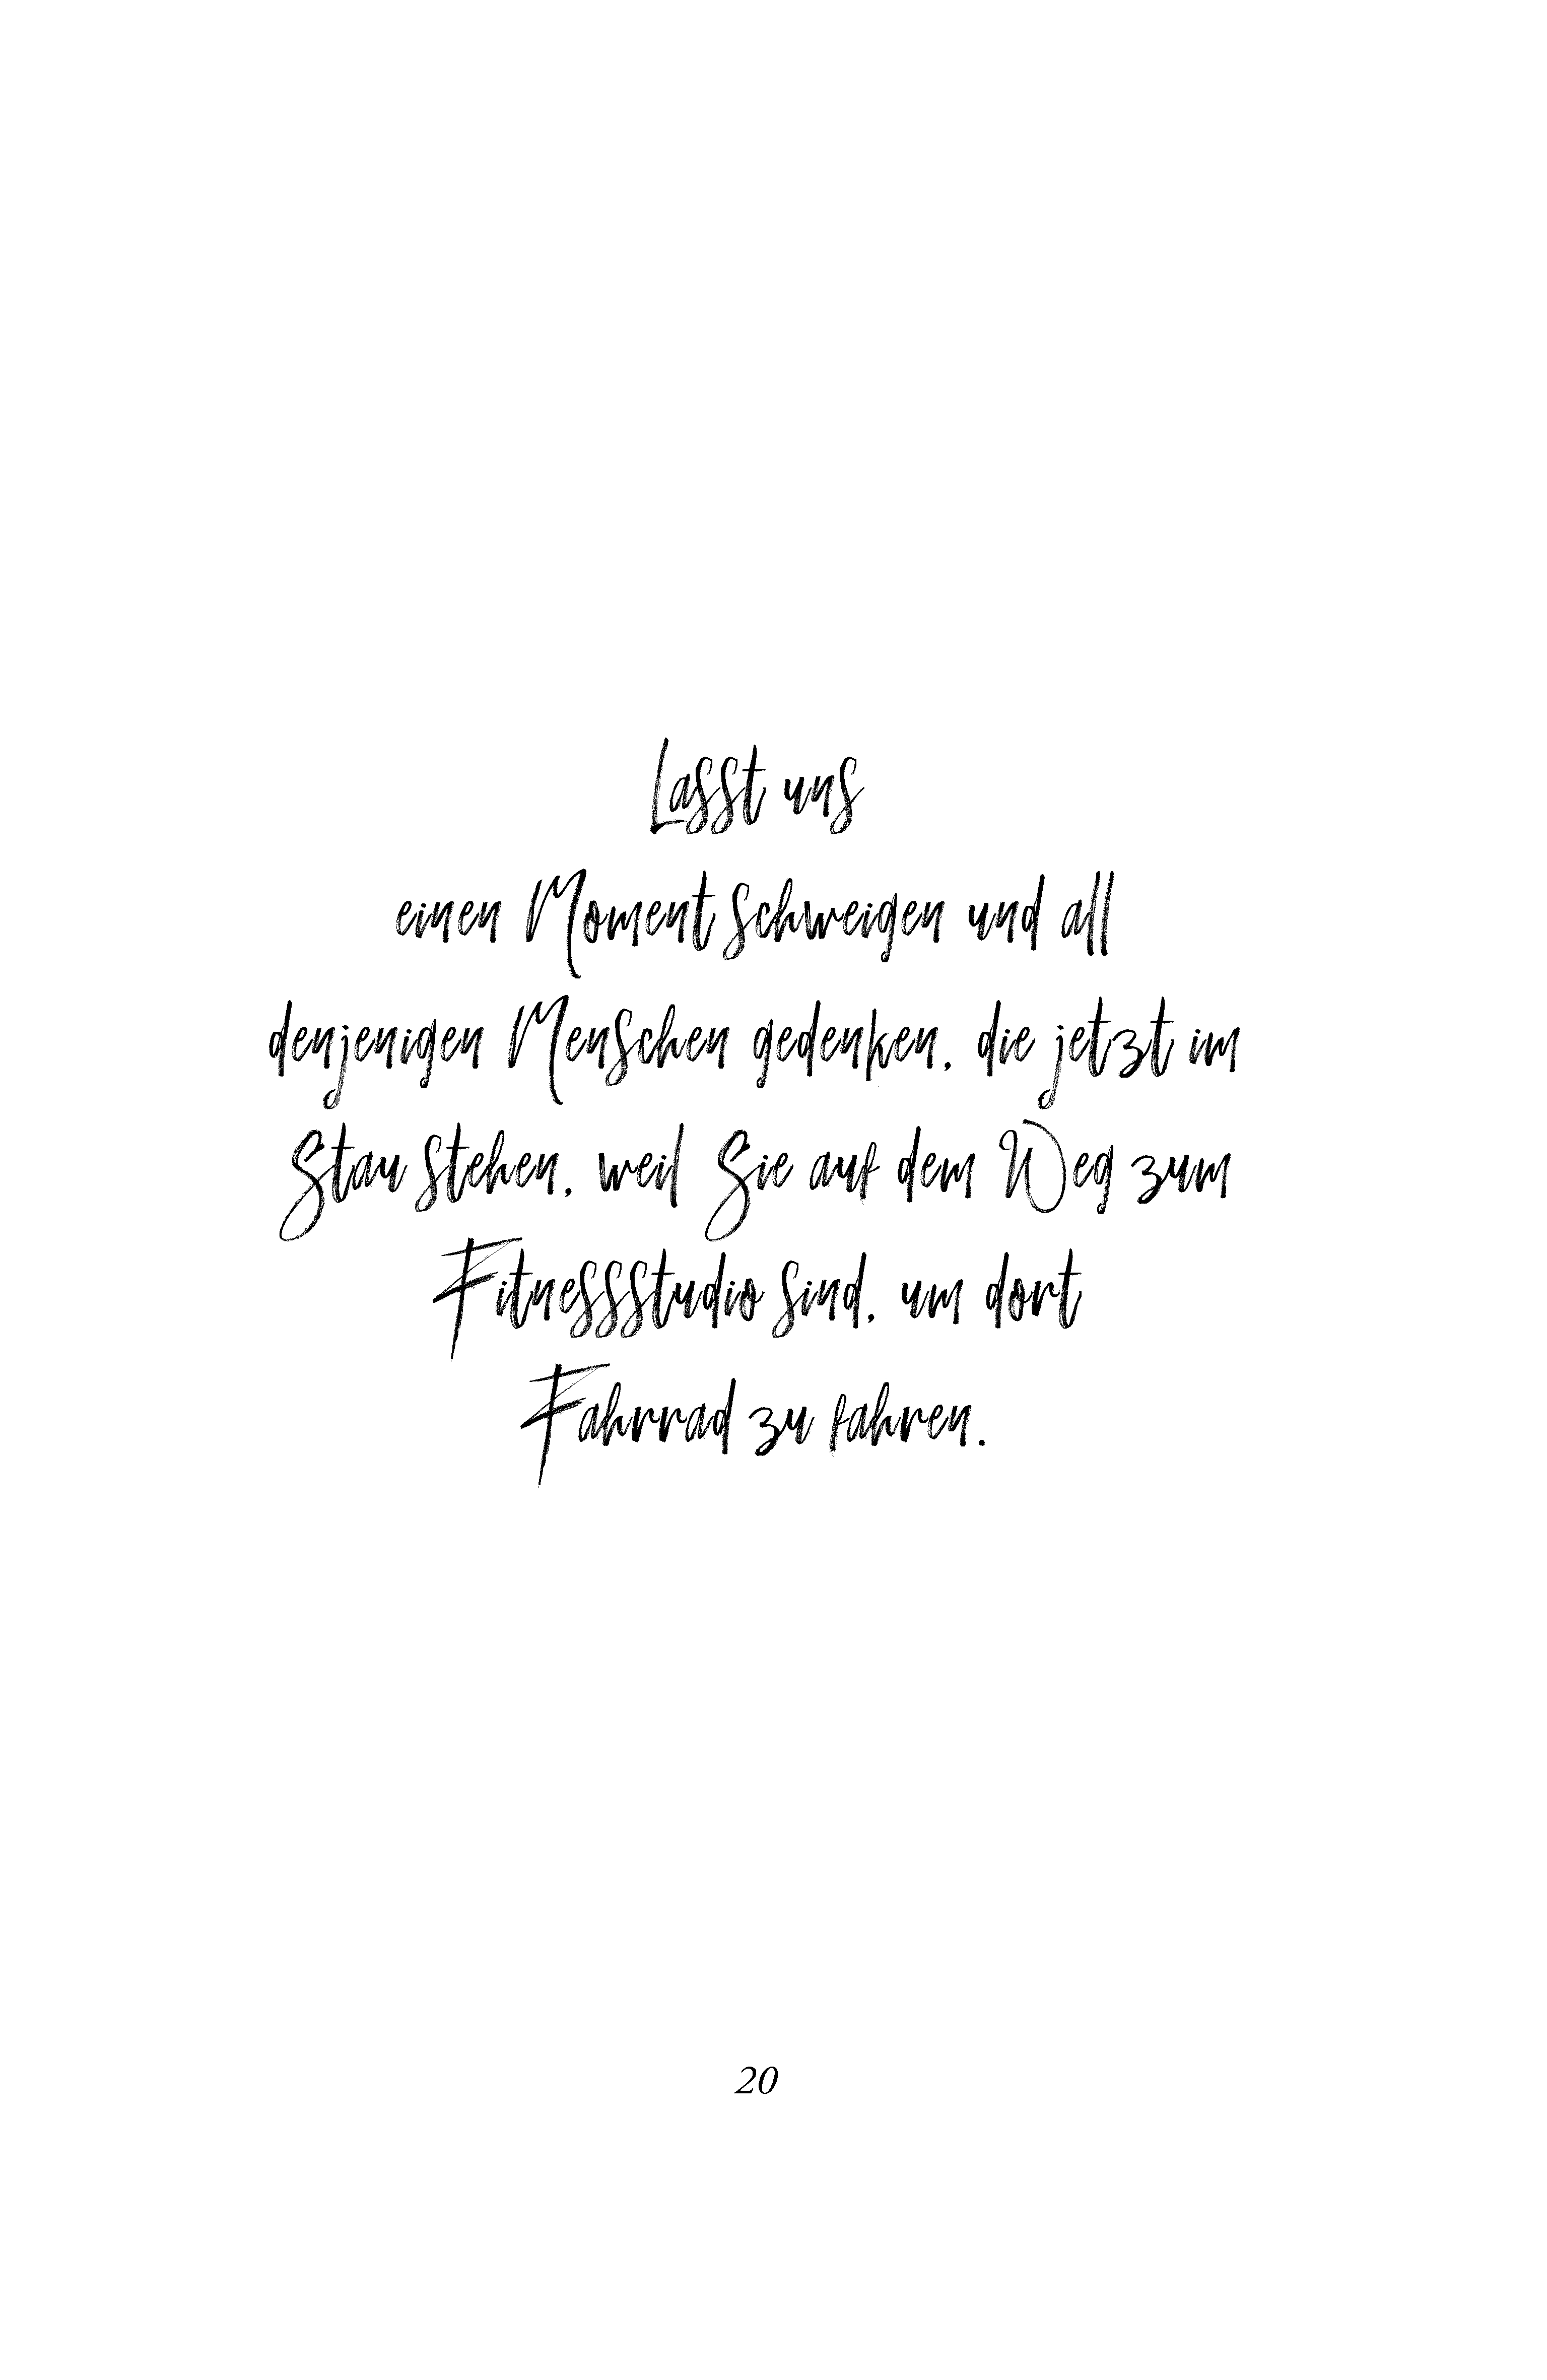 Lasst uns
einen Moment schweigen und all
denjenigen Menschen gedenken, die jetzt im
Stau stehen, weil Sie auf dem Weg zum
Fitnessstudio sind, um dort
Fahrrad zu fahren.
20